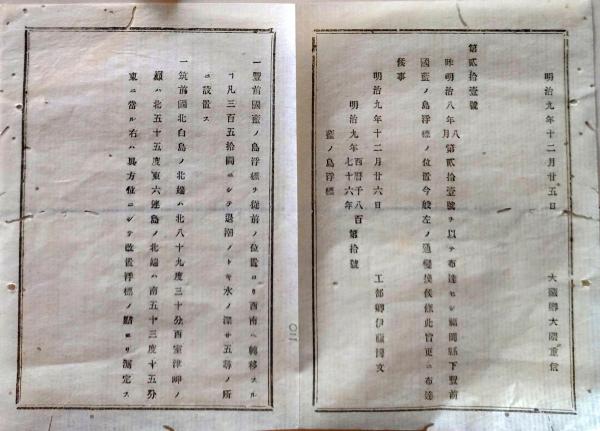 明治九年十二月廿五日
大藏卿大隈重信
第貳拾壹號
昨明治八年八月第貳拾壹號ヲ以テ布達セシ福岡縣下豐前
國藍ノ島浮標ノ位置今般左ノ通變換候條此旨更ニ布達
候事
明治九年十二月廿六日
工部卿伊藤博文
明治九年西曆千八百七十六年第拾號
藍ノ島浮標
一豐前國藍ノ島浮標ヲ從前ノ位置ヨリ西南ヘ轉移スル
ヿ凡三百五拾間ニシテ退潮ノトキ水ノ深サ五尋ノ所
ニ設置ス
一筑前國北白島ノ北端ハ北八十九度三十分西室津岬ノ
顚ハ北五十五度東六連島ノ北端ハ南五十三度十五分
東ニ當ル右ハ眞方位ニシテ改置浮標ノ點ヨリ測定ス